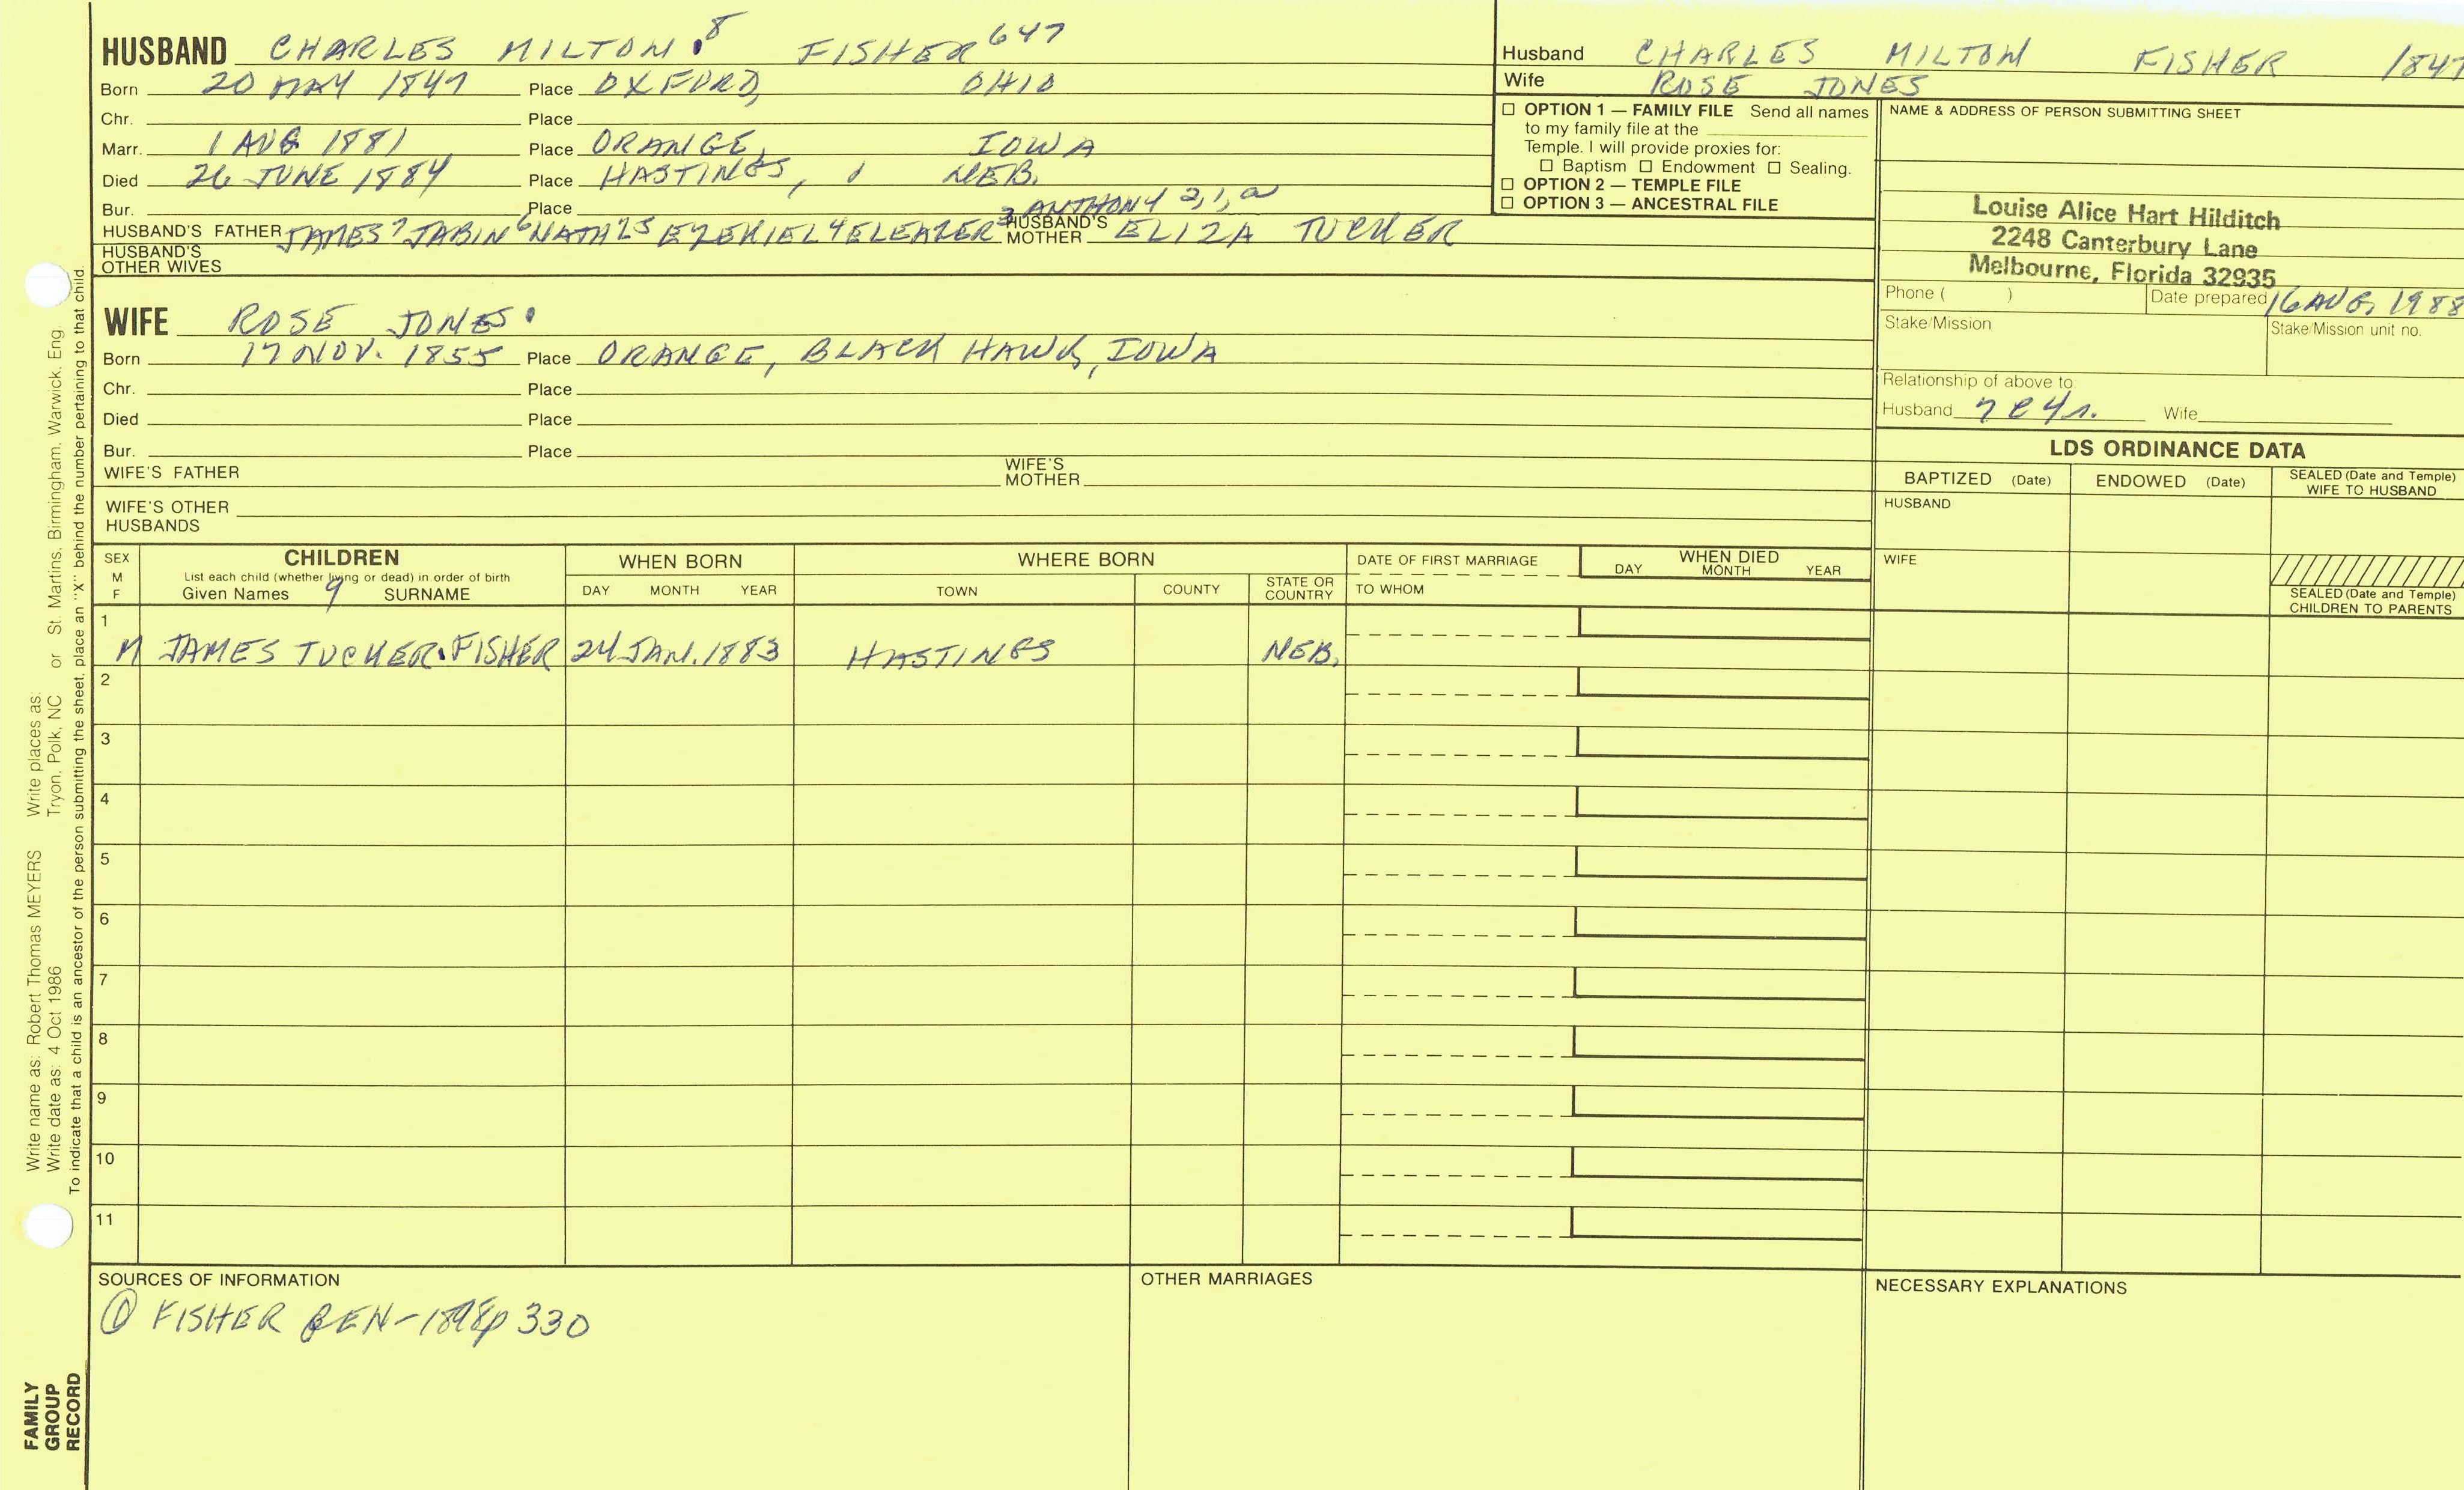 HUSBAND CHARLES MILTON 8 FISHER 647
Born 20 MAY 1847 Place OXFORD, OHIO
Chr. Place
Marr. 1 AUG 1881 Place ORANGE, IOWA
Died 26 JUNE 1884 Place HASTINGS, NEB.
Bur. Place
HUSBAND'S FATHER JAMES 7 JABIN 6 NATH'L 5 EZEKIEL 4 ELEAZER 3 ANTHONY 2, 1, a HUSBAND'S MOTHER ELIZA TUCKER
HUSBAND'S OTHER WIVES
WIFE ROSE JONES
Born 17 NOV. 1855 Place ORANGE, BLACK HAWK, IOWA
Chr. Place
Died Place
Bur. Place
WIFE'S FATHER WIFE'S MOTHER
WIFE'S OTHER HUSBANDS
Husband CHARLES MILTON FISHER 1847
Wife ROSE JONES
☐ OPTION 1 — FAMILY FILE Send all names
to my family file at the
Temple. I will provide proxies for:
☐ Baptism ☐ Endowment ☐ Sealing.
☐ OPTION 2 — TEMPLE FILE
☐ OPTION 3 — ANCESTRAL FILE
NAME & ADDRESS OF PERSON SUBMITTING SHEET
Louise Alice Hart Hilditch
2248 Canterbury Lane
Melbourne, Florida 32935
Phone ( ) Date prepared 16 AUG, 1988
Stake/Mission Stake/Mission unit no.
Relationship of above to:
Husband 7c4r. Wife
LDS ORDINANCE DATA
BAPTIZED (Date) ENDOWED (Date) SEALED (Date and Temple) WIFE TO HUSBAND
HUSBAND
WIFE
SEALED (Date and Temple) CHILDREN TO PARENTS
SEX M F
CHILDREN
List each child (whether living or dead) in order of birth
Given Names 9 SURNAME
WHEN BORN
DAY MONTH YEAR
WHERE BORN
TOWN COUNTY STATE OR COUNTRY
DATE OF FIRST MARRIAGE
TO WHOM
WHEN DIED
DAY MONTH YEAR
1
M JAMES TUCKER FISHER 24 JAN. 1883 HASTINGS NEB.
2
3
4
5
6
7
8
9
10
11
SOURCES OF INFORMATION
① FISHER GEN-1898p 330
OTHER MARRIAGES
NECESSARY EXPLANATIONS
Write name as: Robert Thomas MEYERS Write places as:
Write date as: 4 Oct 1986 Tryon, Polk, NC or St. Martins, Birmingham, Warwick, Eng
To indicate that a child is an ancestor of the person submitting the sheet, place an "X" behind the number pertaining to that child.
FAMILY
GROUP
RECORD